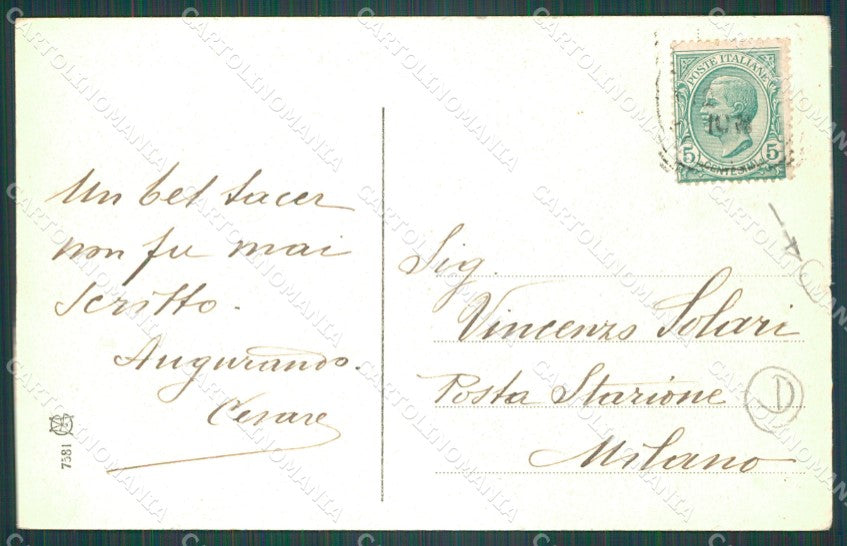 Un bel tacer
non fu mai
scritto.
Augurando.
Cesare
7581
POSTE ITALIANE
5 CENTESIMI 5
Sig.
Vincenzo Solari
Posta Stazione
Milano
D
CARTOLINOMANIA